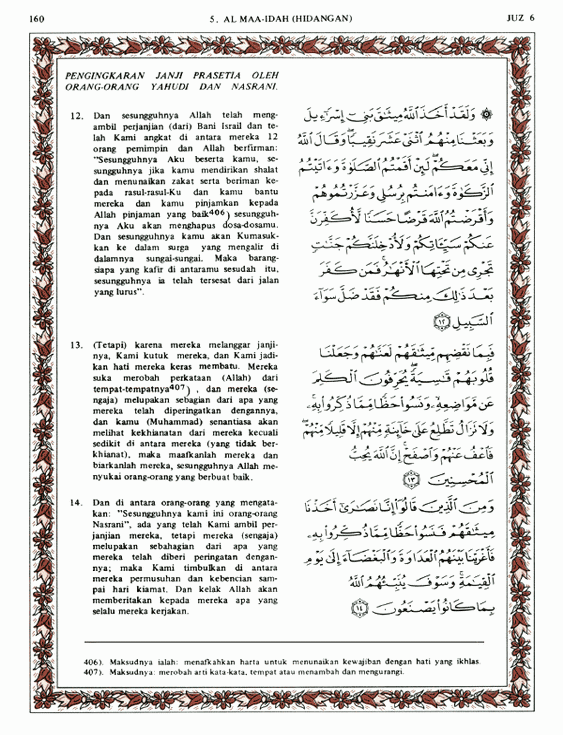 160
5. AL MAA-IDAH (HIDANGAN)
JUZ 6
PENGINGKARAN JANJI PRASETIA OLEH
ORANG-ORANG YAHUDI DAN NASRANI.
12. Dan sesungguhnya Allah telah meng-
ambil perjanjian (dari) Bani Israil dan te-
lah Kami angkat di antara mereka 12
orang pemimpin dan Allah berfirman:
"Sesungguhnya Aku beserta kamu, se-
sungguhnya jika kamu mendirikan shalat
dan menunaikan zakat serta beriman ke-
pada rasul-rasul-Ku dan kamu bantu
mereka dan kamu pinjamkan kepada
Allah pinjaman yang baik406) sesungguh-
nya Aku akan menghapus dosa-dosamu.
Dan sesungguhnya kamu akan Kumasuk-
kan ke dalam surga yang mengalir di
dalamnya sungai-sungai. Maka barang-
siapa yang kafir di antaramu sesudah itu,
sesungguhnya ia telah tersesat dari jalan
yang lurus".
۞ وَلَقَدْ أَخَذَ اللَّهُ مِيثَٰقَ بَنِىٓ إِسْرَٰٓءِيلَ
وَبَعَثْنَا مِنْهُمُ ٱثْنَىْ عَشَرَ نَقِيبًا ۖ وَقَالَ ٱللَّهُ
إِنِّى مَعَكُمْ ۖ لَئِنْ أَقَمْتُمُ ٱلصَّلَوٰةَ وَءَاتَيْتُمُ
ٱلزَّكَوٰةَ وَءَامَنتُم بِرُسُلِى وَعَزَّرْتُمُوهُمْ
وَأَقْرَضْتُمُ ٱللَّهَ قَرْضًا حَسَنًا لَّأُكَفِّرَنَّ
عَنكُمْ سَيِّـَٔاتِكُمْ وَلَأُدْخِلَنَّكُمْ جَنَّٰتٍ
تَجْرِى مِن تَحْتِهَا ٱلْأَنْهَٰرُ ۚ فَمَن كَفَرَ
بَعْدَ ذَٰلِكَ مِنكُمْ فَقَدْ ضَلَّ سَوَآءَ
ٱلسَّبِيلِ ﴿١٢﴾
13. (Tetapi) karena mereka melanggar janji-
nya, Kami kutuk mereka, dan Kami jadi-
kan hati mereka keras membatu. Mereka
suka merobah perkataan (Allah) dari
tempat-tempatnya407) , dan mereka (se-
ngaja) melupakan sebagian dari apa yang
mereka telah diperingatkan dengannya,
dan kamu (Muhammad) senantiasa akan
melihat kekhianatan dari mereka kecuali
sedikit di antara mereka (yang tidak ber-
khianat), maka maafkanlah mereka dan
biarkanlah mereka, sesungguhnya Allah me-
nyukai orang-orang yang berbuat baik.
فَبِمَا نَقْضِهِم مِّيثَٰقَهُمْ لَعَنَّٰهُمْ وَجَعَلْنَا
قُلُوبَهُمْ قَٰسِيَةً ۖ يُحَرِّفُونَ ٱلْكَلِمَ
عَن مَّوَاضِعِهِۦ ۙ وَنَسُوا۟ حَظًّا مِّمَّا ذُكِّرُوا۟ بِهِۦ ۚ
وَلَا تَزَالُ تَطَّلِعُ عَلَىٰ خَآئِنَةٍ مِّنْهُمْ إِلَّا قَلِيلًا مِّنْهُمْ ۖ
فَٱعْفُ عَنْهُمْ وَٱصْفَحْ ۚ إِنَّ ٱللَّهَ يُحِبُّ
ٱلْمُحْسِنِينَ ﴿١٣﴾
14. Dan di antara orang-orang yang mengata-
kan: "Sesungguhnya kami ini orang-orang
Nasrani", ada yang telah Kami ambil per-
janjian mereka, tetapi mereka (sengaja)
melupakan sebahagian dari apa yang
mereka telah diberi peringatan dengan-
nya; maka Kami timbulkan di antara
mereka permusuhan dan kebencian sam-
pai hari kiamat. Dan kelak Allah akan
memberitakan kepada mereka apa yang
selalu mereka kerjakan.
وَمِنَ ٱلَّذِينَ قَالُوٓا۟ إِنَّا نَصَٰرَىٰٓ أَخَذْنَا
مِيثَٰقَهُمْ فَنَسُوا۟ حَظًّا مِّمَّا ذُكِّرُوا۟ بِهِۦ
فَأَغْرَيْنَا بَيْنَهُمُ ٱلْعَدَاوَةَ وَٱلْبَغْضَآءَ إِلَىٰ يَوْمِ
ٱلْقِيَٰمَةِ ۚ وَسَوْفَ يُنَبِّئُهُمُ ٱللَّهُ
بِمَا كَانُوا۟ يَصْنَعُونَ ﴿١٤﴾
406). Maksudnya ialah: menafkahkan harta untuk menunaikan kewajiban dengan hati yang ikhlas.
407). Maksudnya: merobah arti kata-kata, tempat atau menambah dan mengurangi.